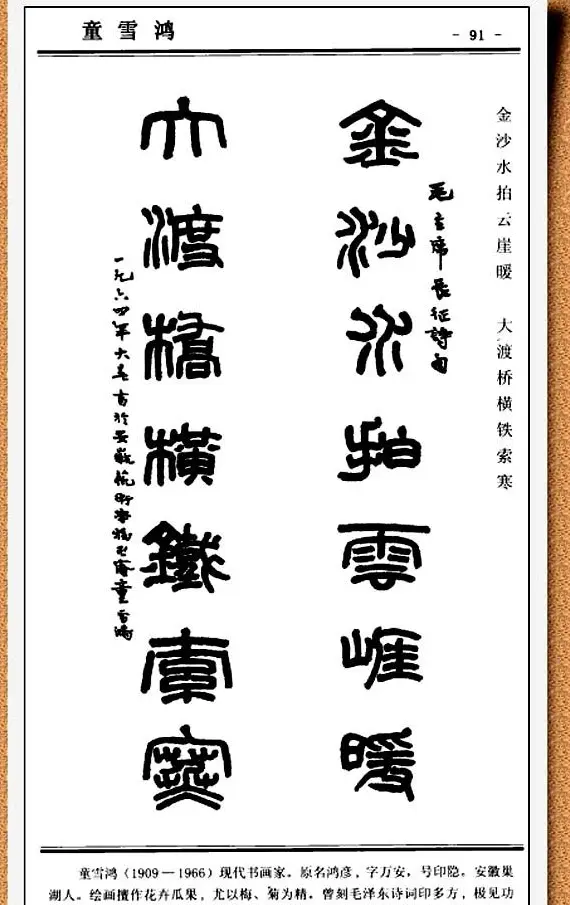 童雪鸿
- 91 -
金沙水拍云崖暖 大渡桥横铁索寒
毛主席长征詩句
金沙水拍雲崕暖
大渡橋橫鐵索寒
一九六四年大暑書於安徽
童雪鴻
童雪鸿（1909—1966）现代书画家。原名鸿彦，字万安，号印隐。安徽巢
湖人。绘画擅作花卉瓜果，尤以梅、菊为精。曾刻毛泽东诗词印多方，极见功